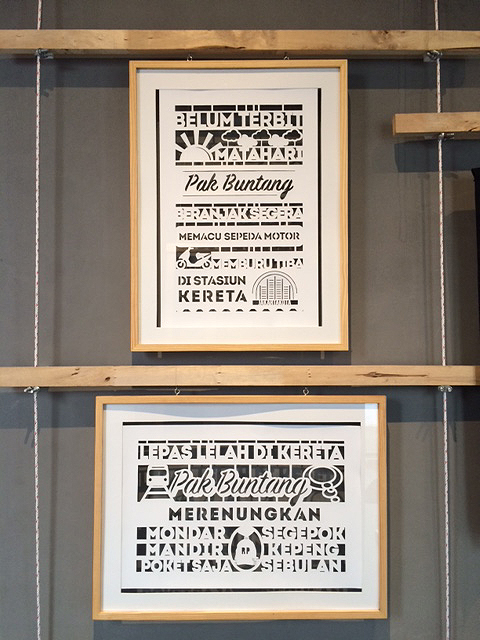 BELUM TERBIT
MATAHARI
Pak Buntang
BERANJAK SEGERA
MEMACU SEPEDA MOTOR
MEMBURU TIBA
DI STASIUN
KERETA
JAKARTAKOTA
LEPAS LELAH DI KERETA
Pak Buntang
MERENUNGKAN
MONDAR SEGEPOK
MANDIR RP KEPENG
POKET SAJA SEBULAN